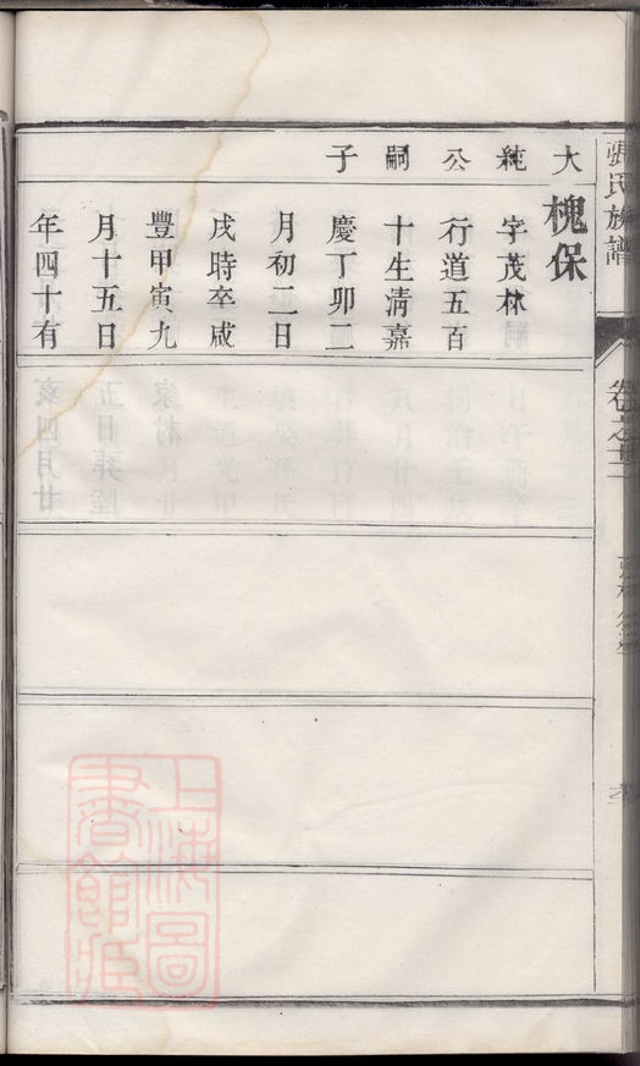 張氏族譜
大純公嗣子
槐保
字茂林
行道五百
十生清嘉
慶丁卯二
月初二日
戌時卒咸
豐甲寅九
月十五日
年四十有
上海圖
書館藏